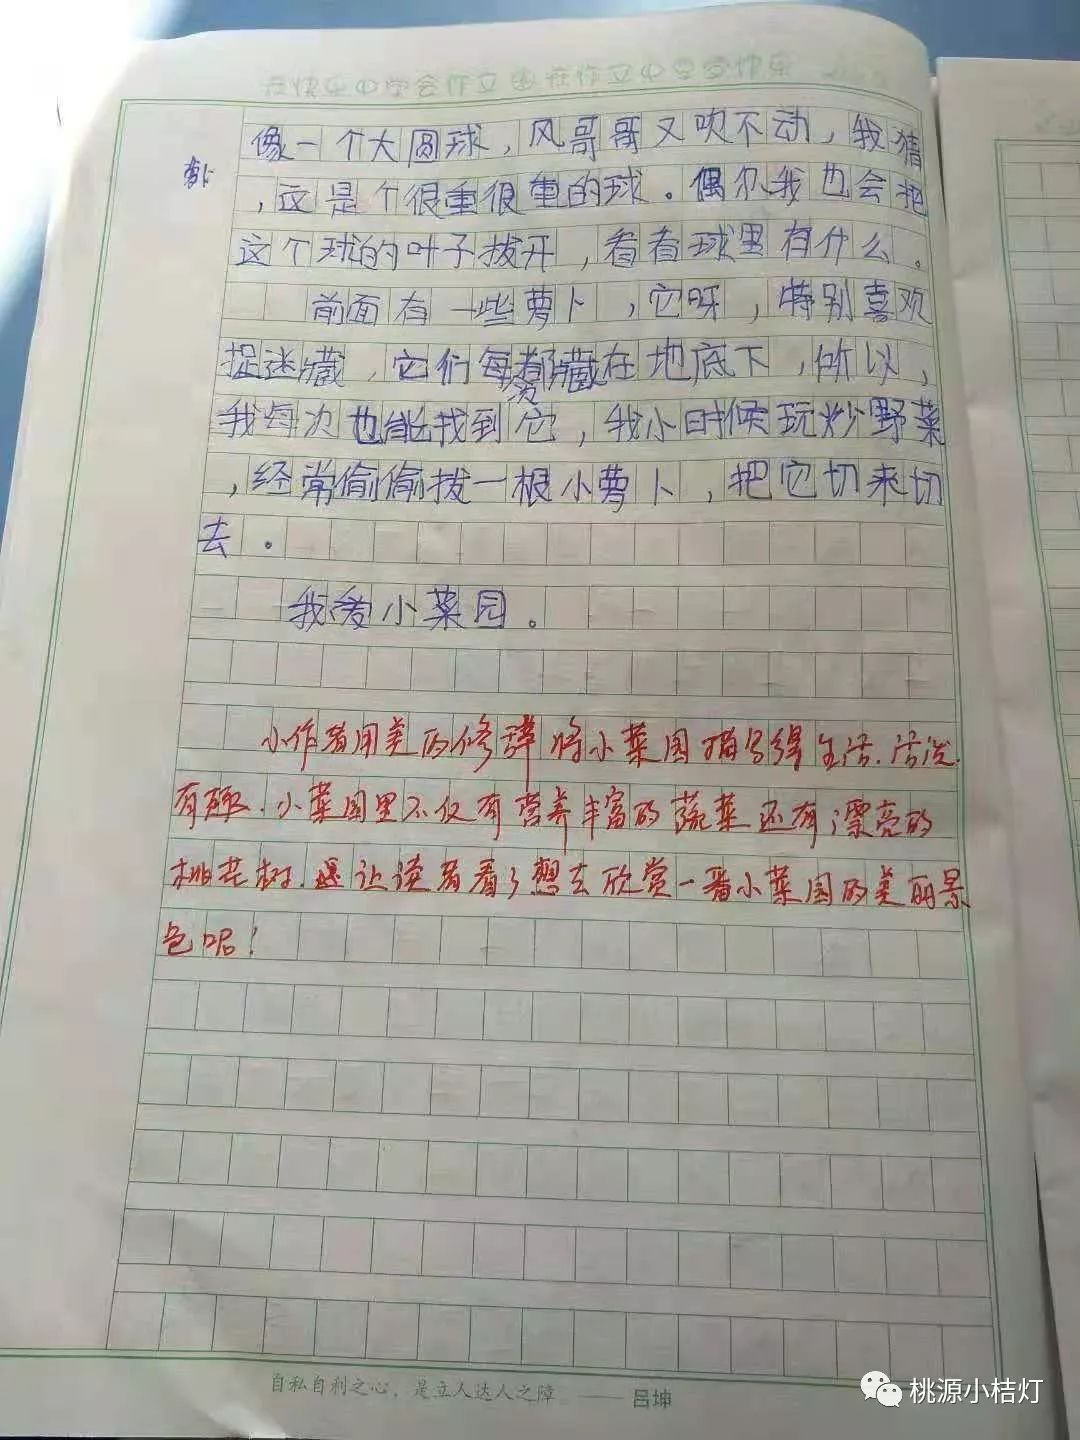 在快乐中学会作文 在作文中享受快乐
像一个大圆球，风哥哥又吹不动，我猜
，这是个很重很重的球。偶尔我也会把
这个球的叶子拔开，看看球里有什么。
前面有一些萝卜，它呀，特别喜欢
捉迷藏，它们每次都藏在地底下，所以，
我每次也能找到它，我小时候玩炒野菜
，经常偷偷拔一根小萝卜，把它切来切
去。
我爱小菜园。
小作者用美的修辞将小菜园描写得生活.活泼.
有趣.小菜园里不仅有营养丰富的蔬菜还有漂亮的
桃花树.让读者看了想去欣赏一番小菜园的美丽景
色呢！
自私自利之心，是立人达人之障 —— 吕坤
桃源小桔灯